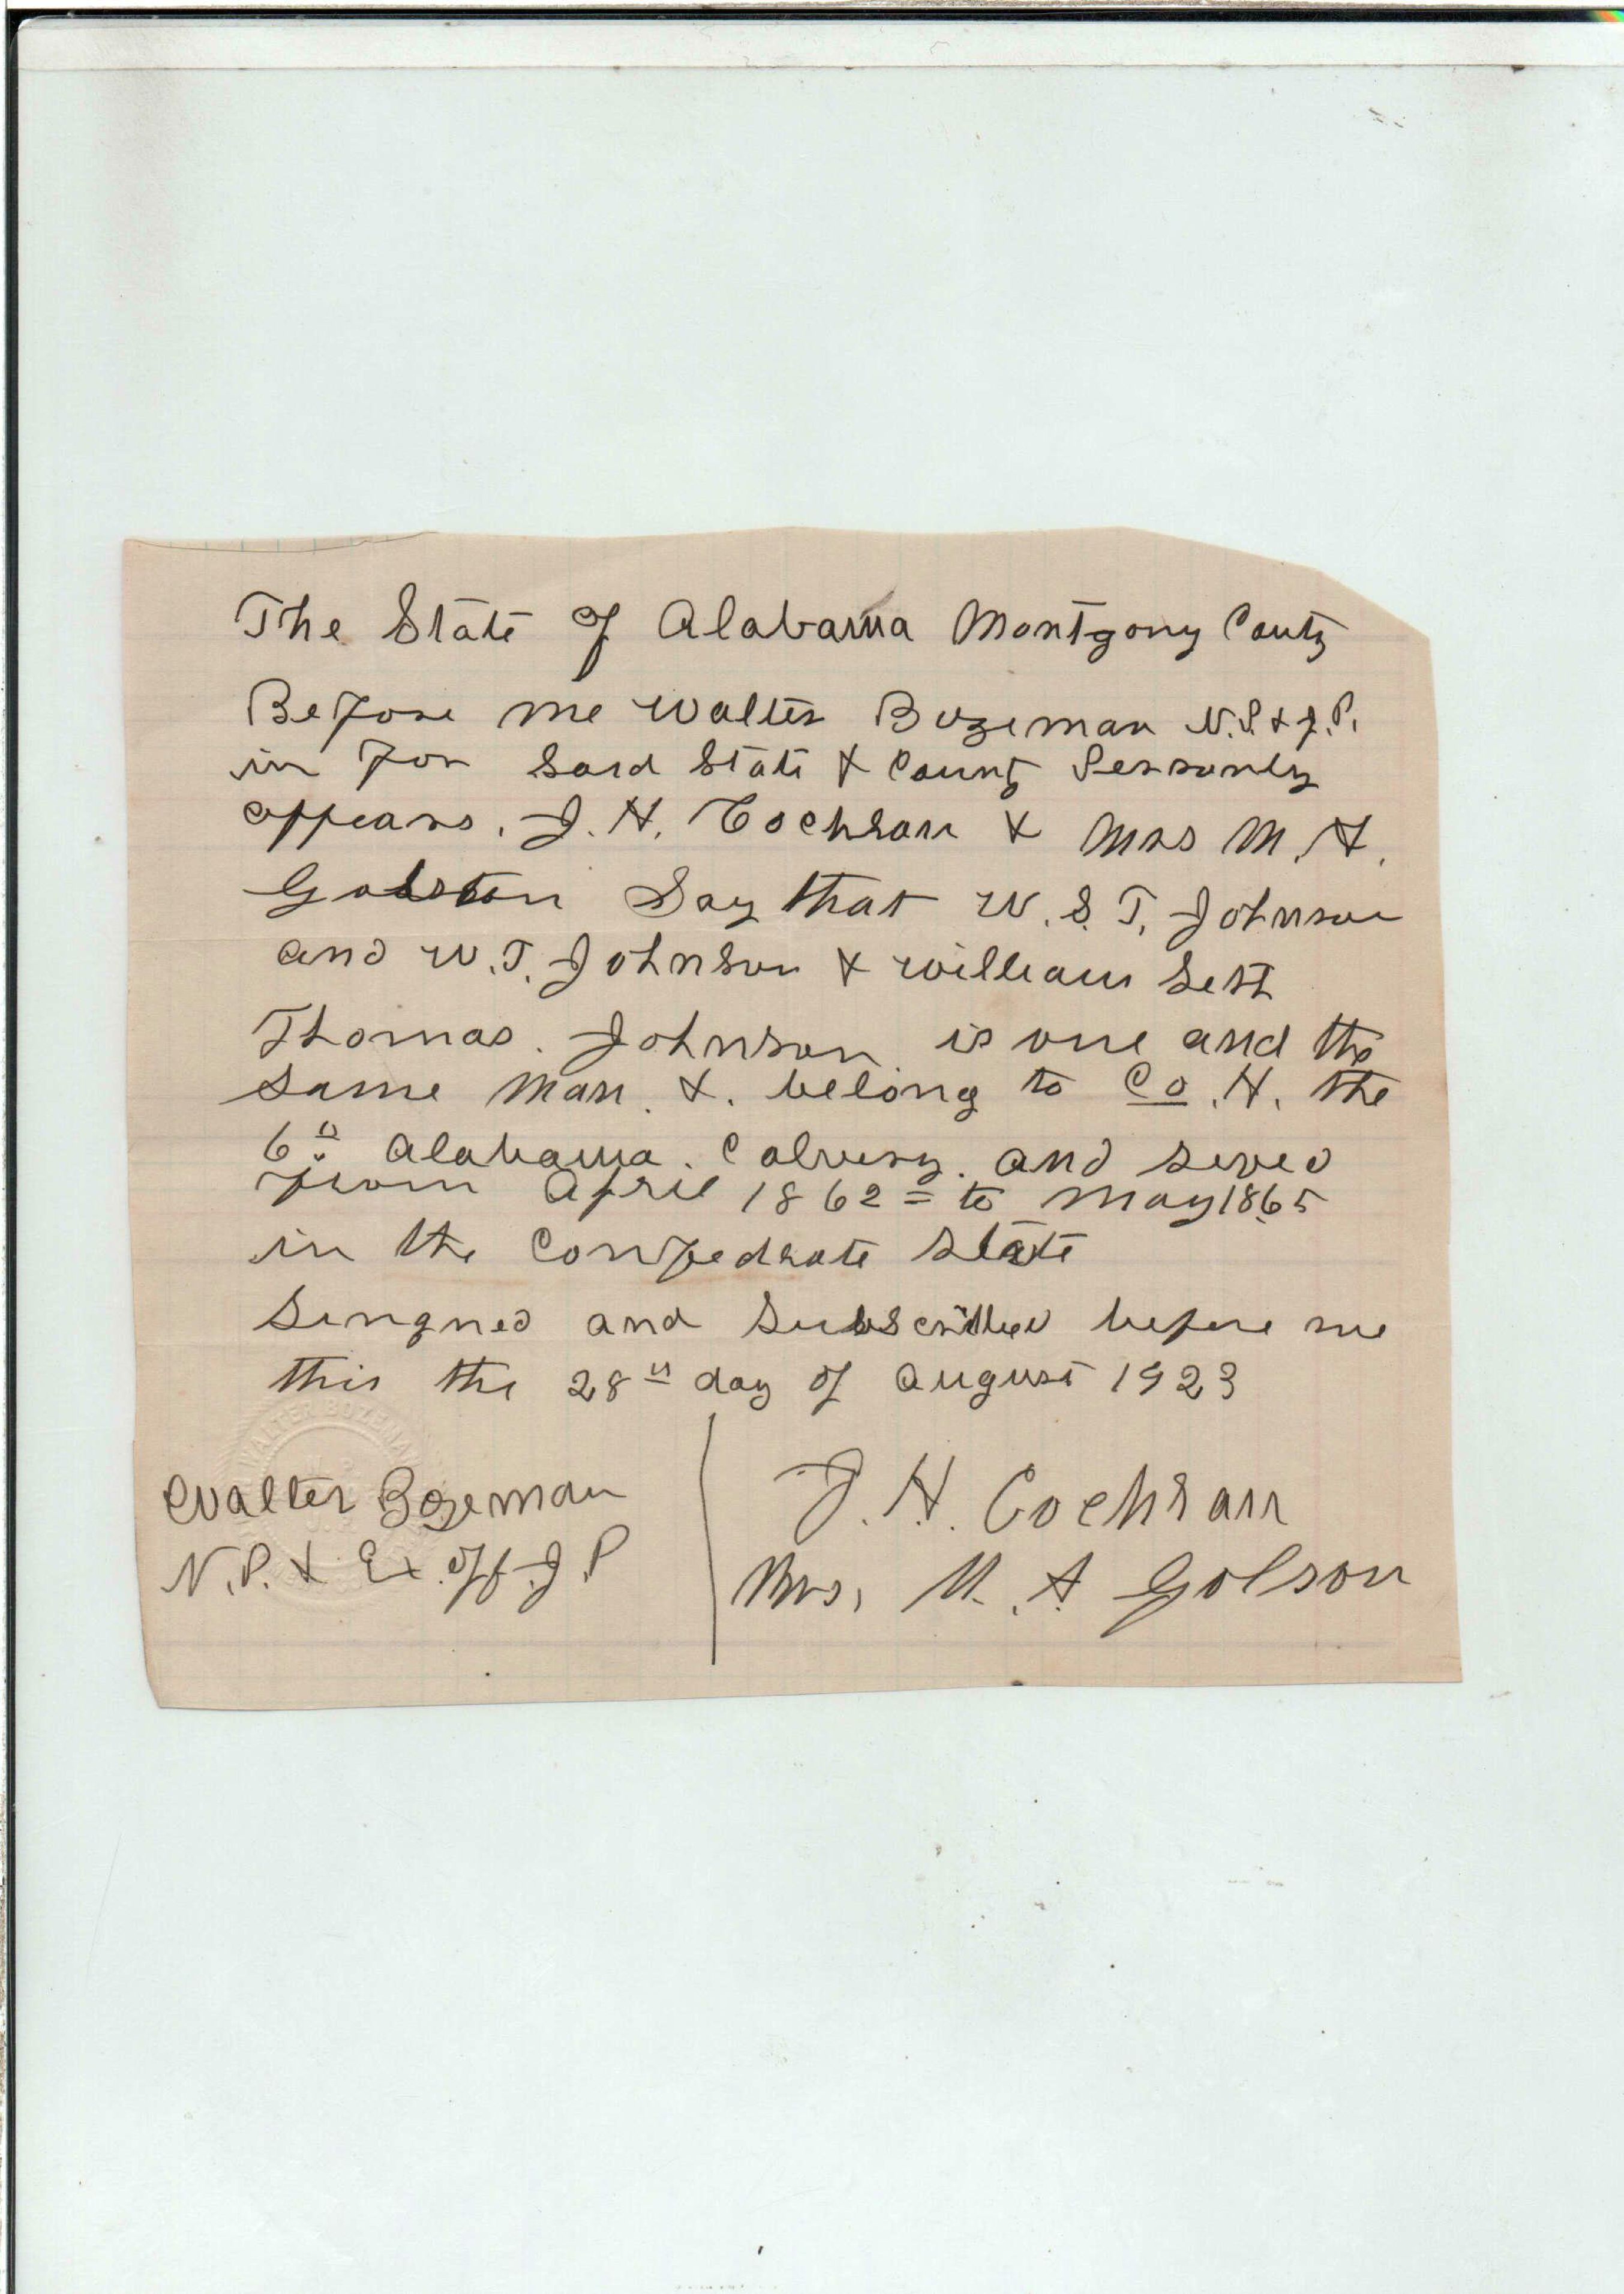 The State of Alabama Montgomy Couty
Before me Walter Bozeman N.P. & J.P.
in for Said State & County Personly
appears. J. H. Cochran & Mrs M. A.
Golson Say that W. S. T. Johnson
and W. T. Johnson & William Sest
Thomas. Johnson is one and the
same man. & belong to Co. H. the
6" Alabama. Calvery. and seved
from April 1862 = to May 1865
in the Confedrate State
Singned and Subscribed before me
this the 28" day of August 1923
WALTER BOZEMAN
Walter Bozeman
N.P. & Ex. Off. J. P
J. H. Cochran
Mrs. M. A Golson